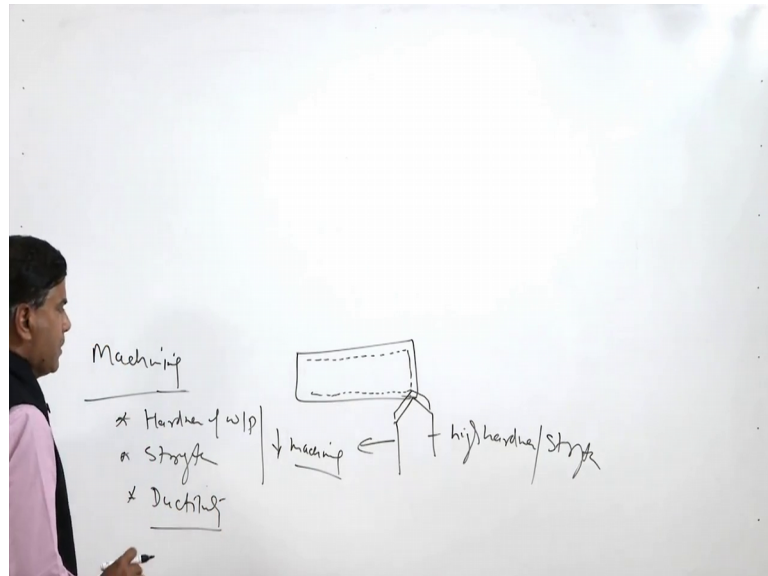 Machining
* Hardness of w/p
* Strength
* Ductility
↓ machining ← high hardness/Strength